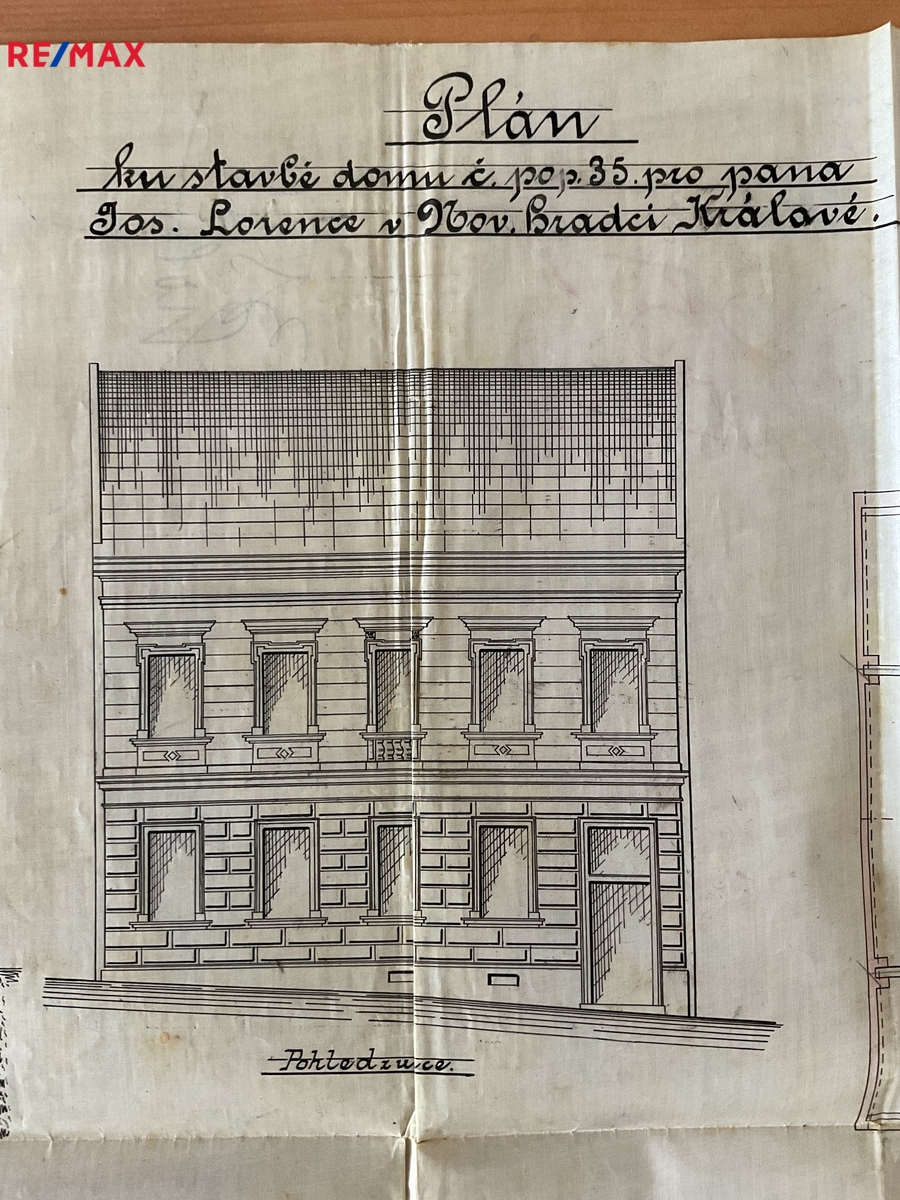 RE/MAX
Plán
ku stavbě domu č. pop. 35. pro pana
Jos. Lorence v Nov. Hradci Králové.
Pohled z ulice.